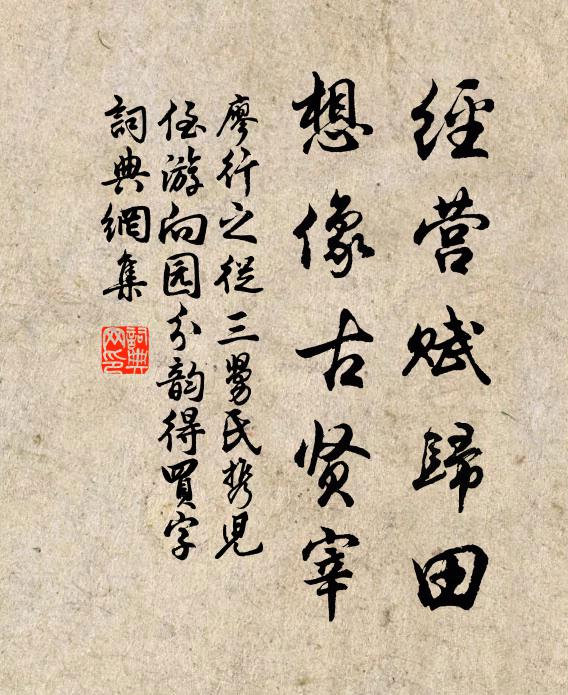 經营赋歸田
想像古贤宰
廖行之從三舅氏携兒
侄游向园分韵得買字
詞典網集
詞典网印